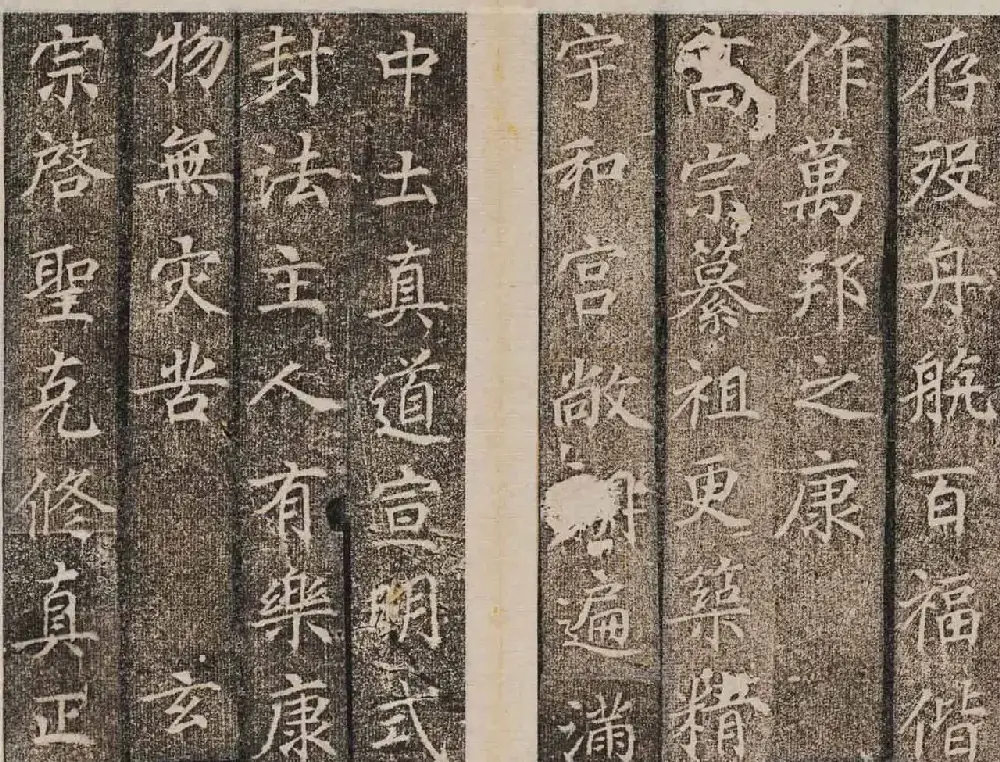 存歿舟航百福偕
作萬邦之康
高宗纂祖更築精
宇和宮敞朗遍滿
中土真道宣明式
封法主人有樂康
物無灾苦 玄
宗啓聖克修真正